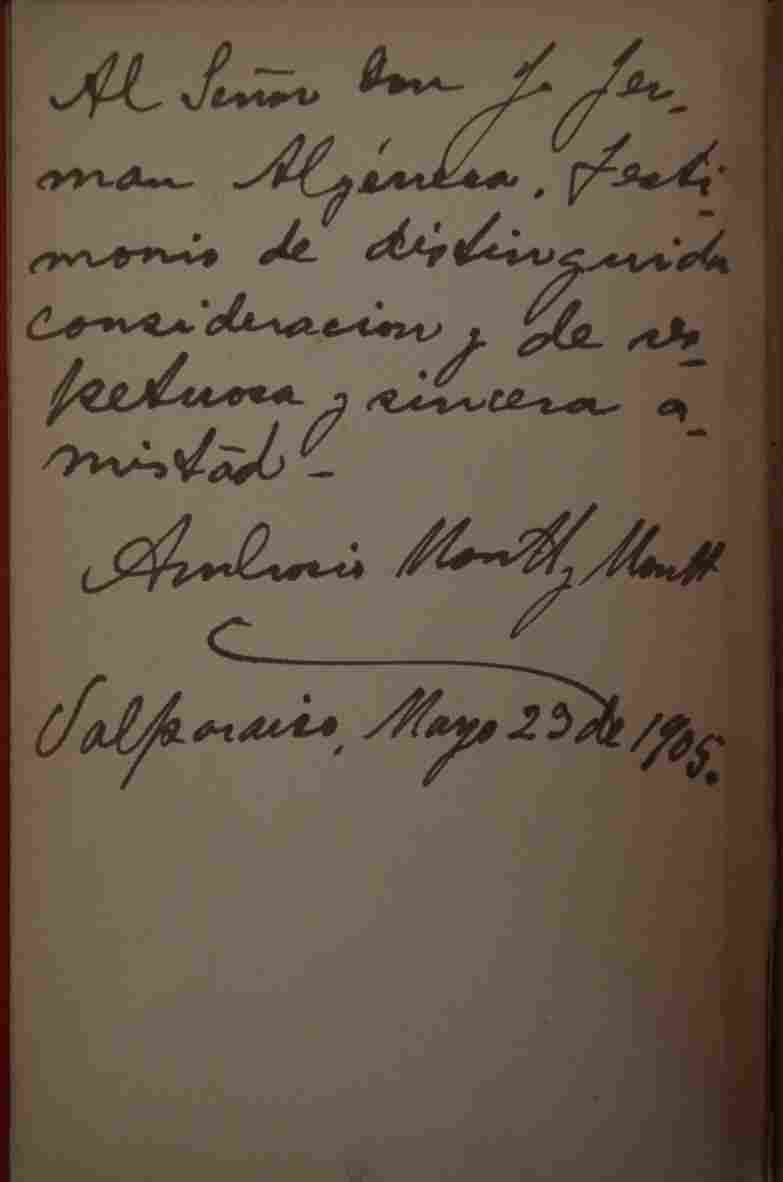 Al Señor Don J. Jer-
man Algérrera. Testi-
monio de distinguida
consideracion y de res-
petuosa y sincera a-
mistad -
Ambrosio Montt y Montt
Valparaiso, Mayo 23 de 1905.